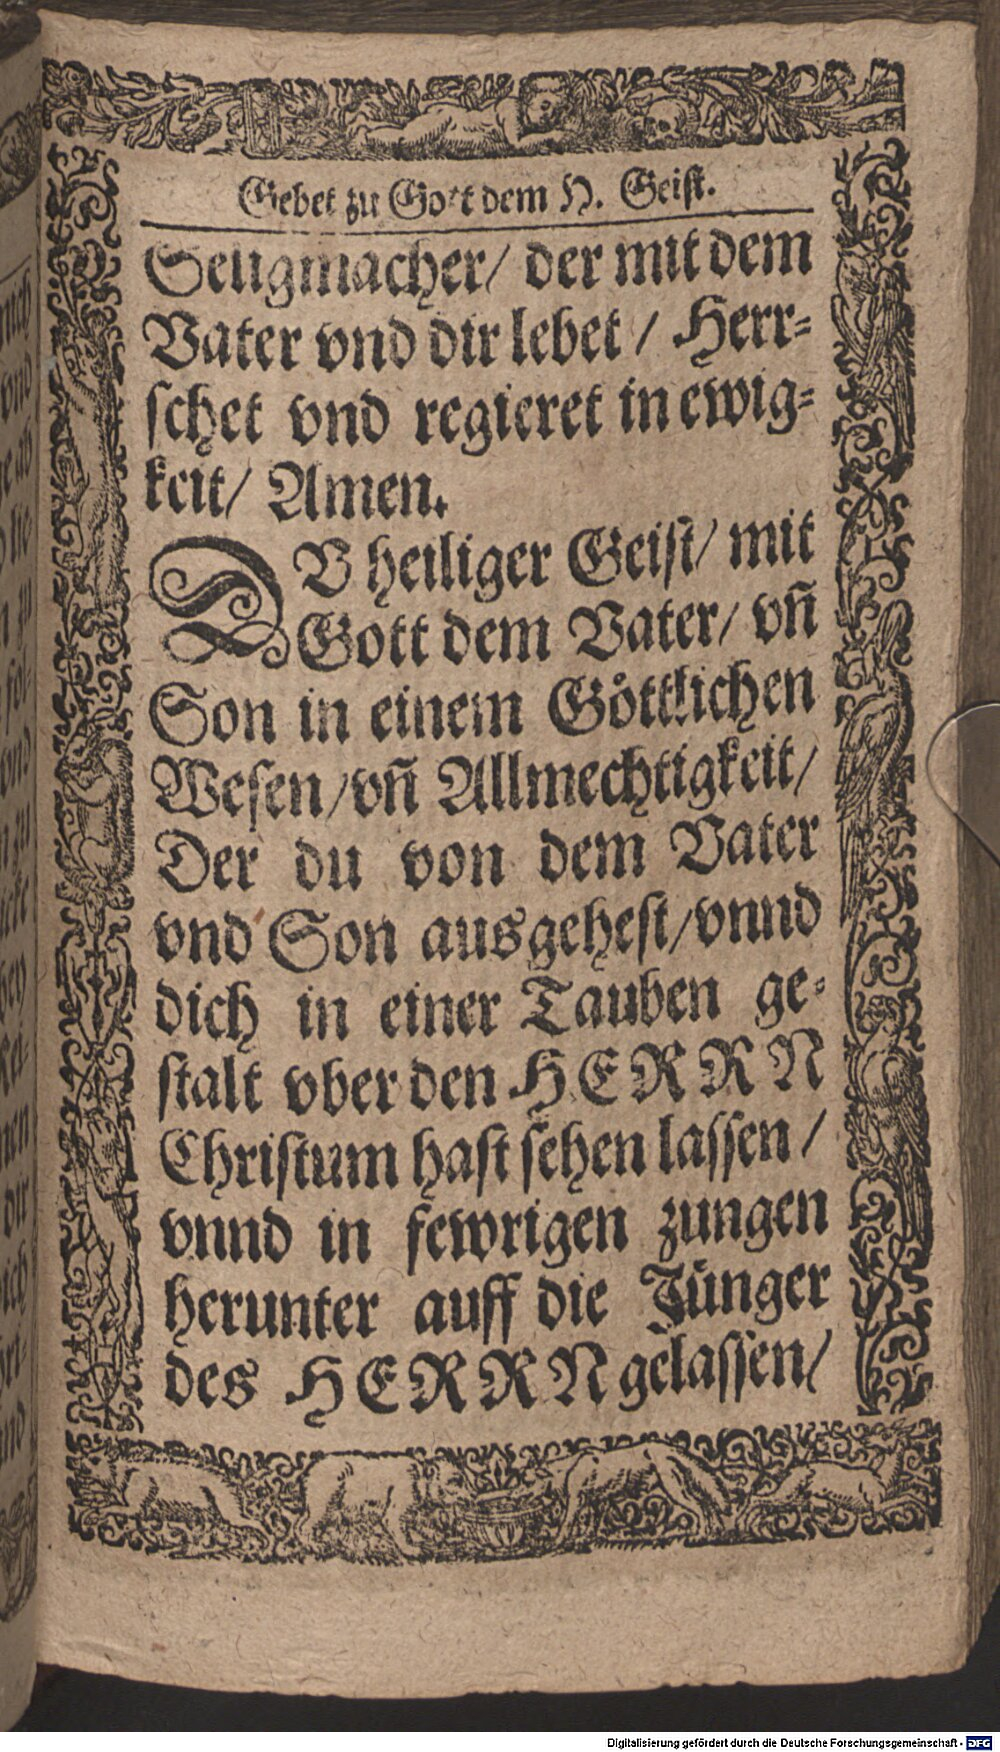 Gebet zu Gott dem H. Geist.
Seligmacher/ der mit dem
Vater vnd dir lebet / Herr-
schet vnd regieret in ewig-
keit/ Amen.
DV heiliger Geist/ mit
Gott dem Vater/ vñ
Son in einem Göttlichen
Wesen/ vñ Allmechtigkeit/
Der du von dem Vater
vnd Son ausgehest/ vnnd
dich in einer Tauben ge-
stalt vber den HERRN
Christum hast sehen lassen/
vnnd in fewrigen zungen
herunter auff die Jünger
des HERRN gelassen/
Digitalisierung gefördert durch die Deutsche Forschungsgemeinschaft - DFG